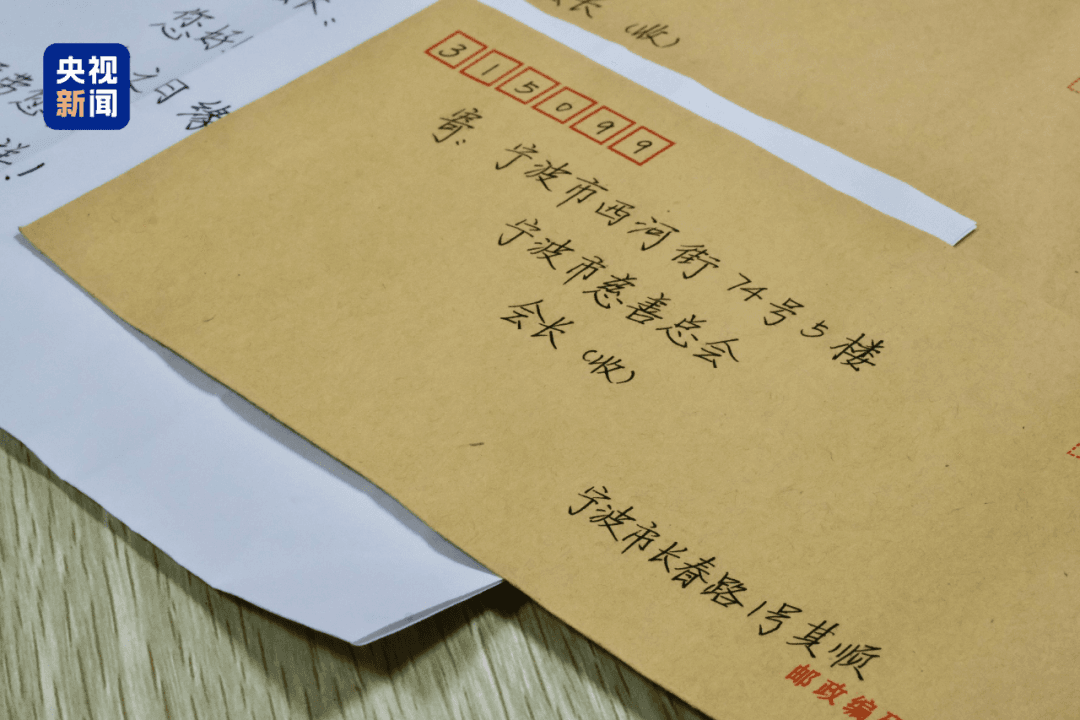 央视
新闻
您好!
之日缘
长(收)
315099
寄: 宁波市西河街74号5楼
宁波市慈善总会
会长(收)
宁波市长春路1号其顺
邮政编